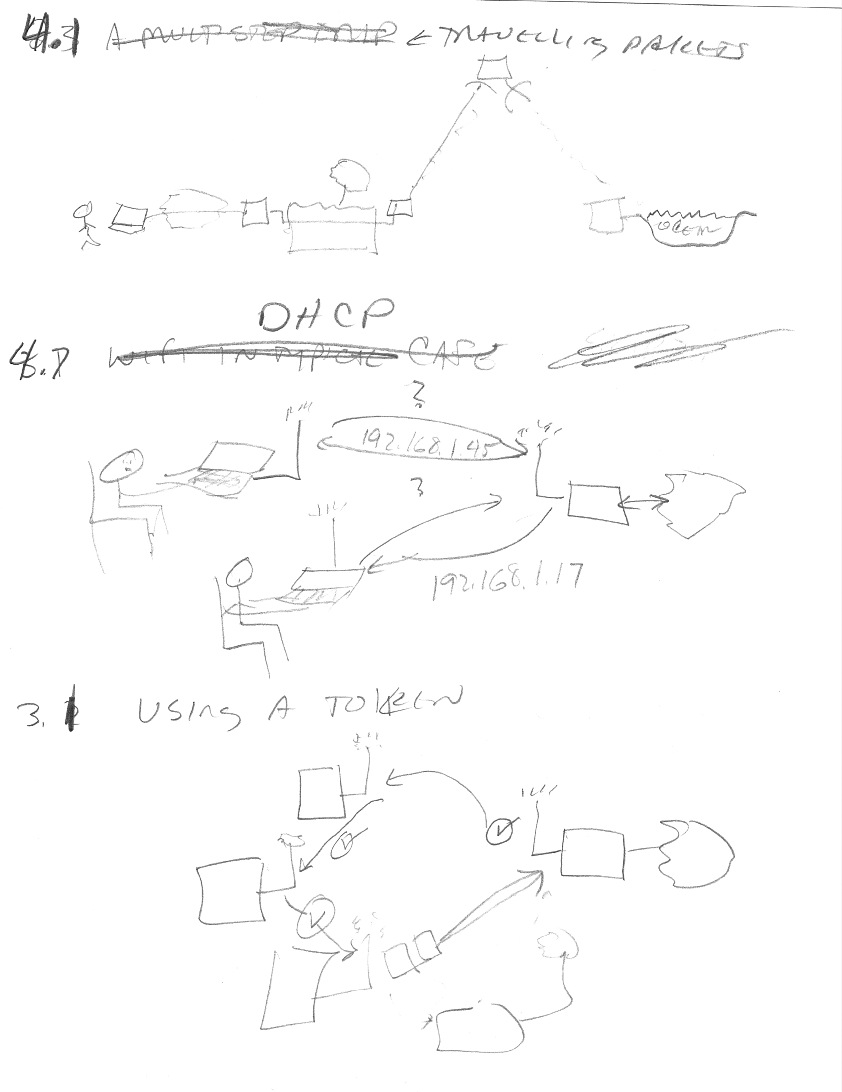 4.3 A MULTI STEP TRIP ← TRAVELLING PACKETS
OCEAN
DHCP
4.7 WIFI IN TYPICAL CAFE
?
192.168.1.45
?
192.168.1.17
3. USING A TOKEN